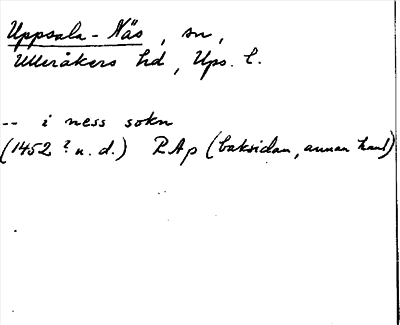 Uppsala-Näs, sn,
Ulleråkers hd, Ups. l.
-- i ness sokn
(1452? n. d.) RAp (baksidan, annan hand)